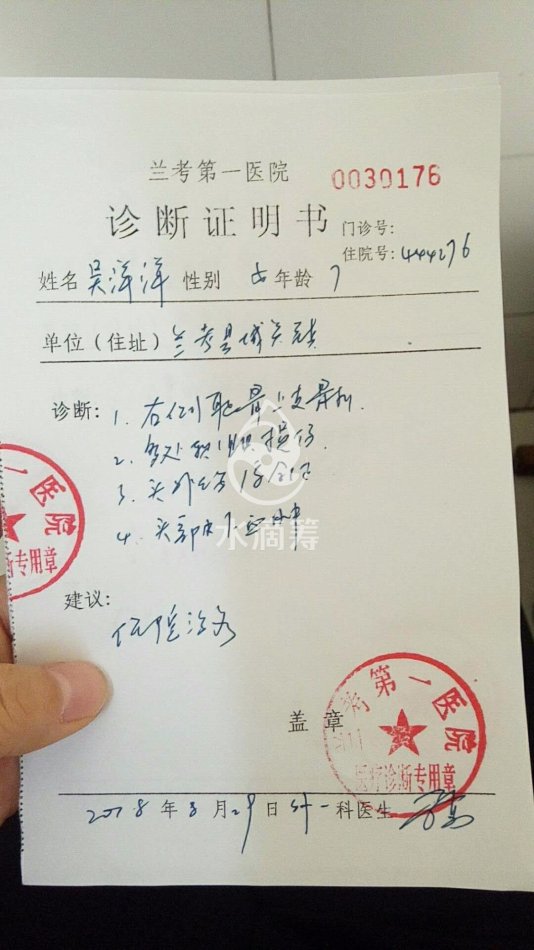 兰考第一医院
0030176
诊断证明书
门诊号:
住院号: 444276
姓名 吴洋洋 性别 女 年龄 7
单位（住址）兰考县城关镇
诊断: 1. 右侧耻骨上支骨折.
2. 多处软组织损伤.
3. 头外伤
4. 头部
水滴筹
建议:
住院治疗
盖章
第一医院
医疗诊断专用章
医院
断专用章
2018年8月29日 外一科医生